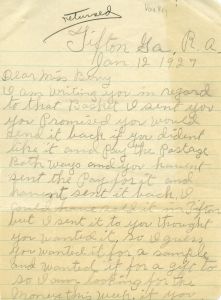 returned
Basket
Tifton Ga, R. A
Jan 12 1927
Dear Miss Berry
I am writing you in regard
to that Basket I sent you
you Promised you would
send it back if you dident
like it and Pay the Postage
Both ways and you havent
sent the Pay for it and
havent sent it back, I
could sold it in Tifton
but I sent it to you thought
you wanted it, so I guess
you wanted it for a sample
and wanted it for a gift to
so I am looking for the
Money this week, if you